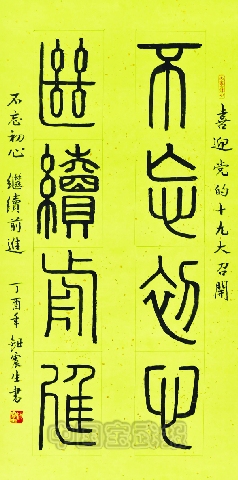 喜迎党的十九大召開
不忘初心
繼續前進
不忘初心 繼續前進 丁酉年 震生書
中国宝武